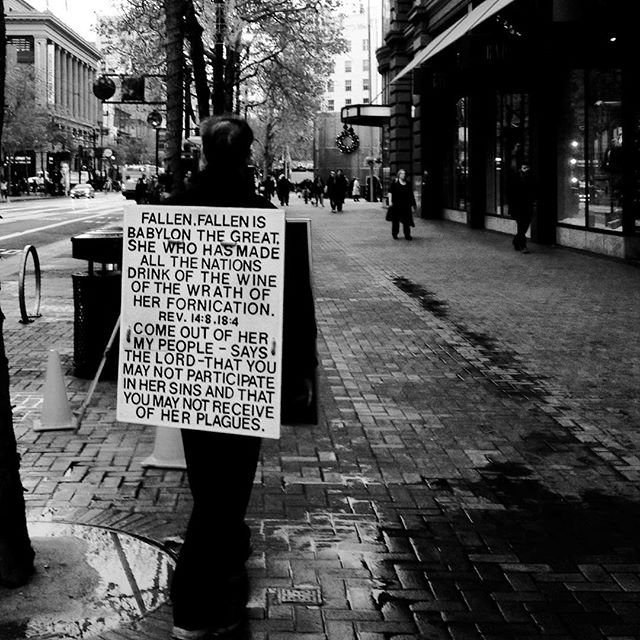 FALLEN, FALLEN IS
BABYLON THE GREAT,
SHE WHO HAS MADE
ALL THE NATIONS
DRINK OF THE WINE
OF THE WRATH OF
HER FORNICATION.
REV. 14:8, 18:4
COME OUT OF HER
MY PEOPLE - SAYS
THE LORD - THAT YOU
MAY NOT PARTICIPATE
IN HER SINS AND THAT
YOU MAY NOT RECEIVE
OF HER PLAGUES.